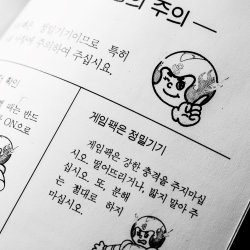 의 주의 —
은 정밀기기이므로 특히
에 주의하여 주십시요.
확인
때는 반드
ON으로
게임팩은 정밀기기
게임팩은 강한 충격을 주지마십
시요. 떨어뜨리거나, 밟지 말아 주
십시요. 또, 분해
는 절대로 하지
마십시요.